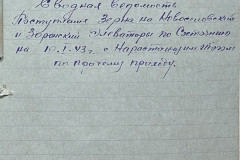 Сводная Ведомость
Поступления Зерна на Новосиловский
и Эбранский Элеваторы по Состоянию
на 10.I.43 г. с Нарастающим Итогом
по прочему приходу.